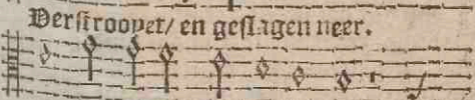 Verstroopet/ en geslagen neer.